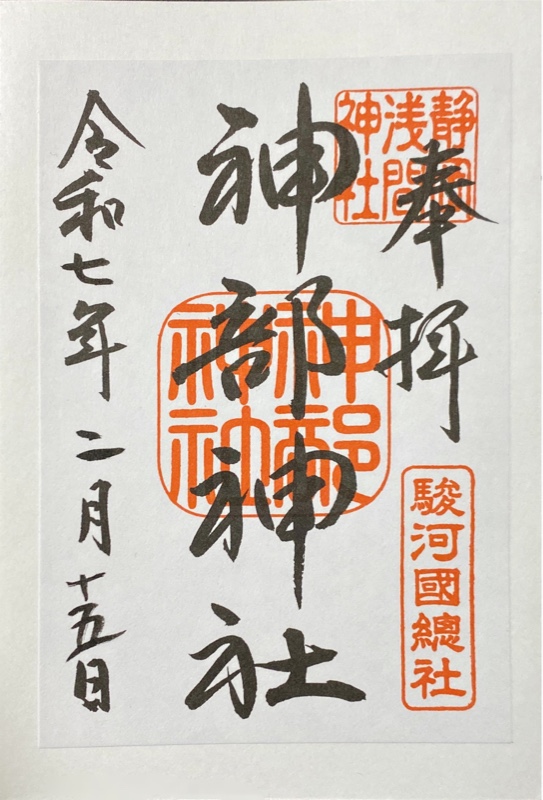 奉拝
静岡
浅間
神社
駿河國總社
神部神社
神部
神社
令和七年二月十五日